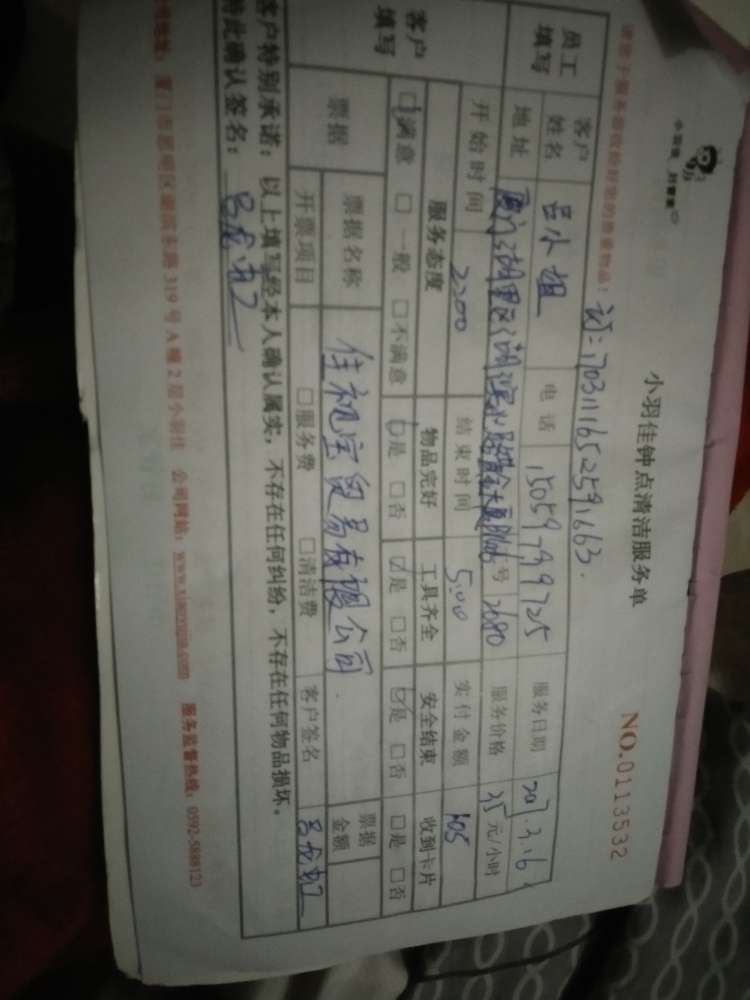 小羽佳 好管家
小羽佳钟点清洁服务单
NO.0113532
请您于服务前收拾好您的贵重物品!
订:170311165259163.
员工填写
客户姓名 吕小姐 电话 15059799725 服务日期 2017.3.16
地址 厦门湖里区湖滨北路 大厦 号 2680 服务价格 35元/小时
开始时间 2:00 结束时间 5:00 实付金额 105
客户填写
服务态度 物品完好 工具齐全 安全结束 收到卡片
□满意 □一般 □不满意 □是 □否 ☑是 □否 ☑是 □否 □是 □否
票据
票据名称 佳祝宝贸易有限公司. 票据金额
开票项目 □服务费 □清洁费 客户签名
客户特别承诺:以上填写经本人确认属实,不存在任何纠纷,不存在任何物品损坏。
特此确认签名:
公司地址:厦门市思明区湖滨东路319号A幢2层小羽佳 公司网站:www.xiaoyujia.com 服务监督热线:0592-5888123